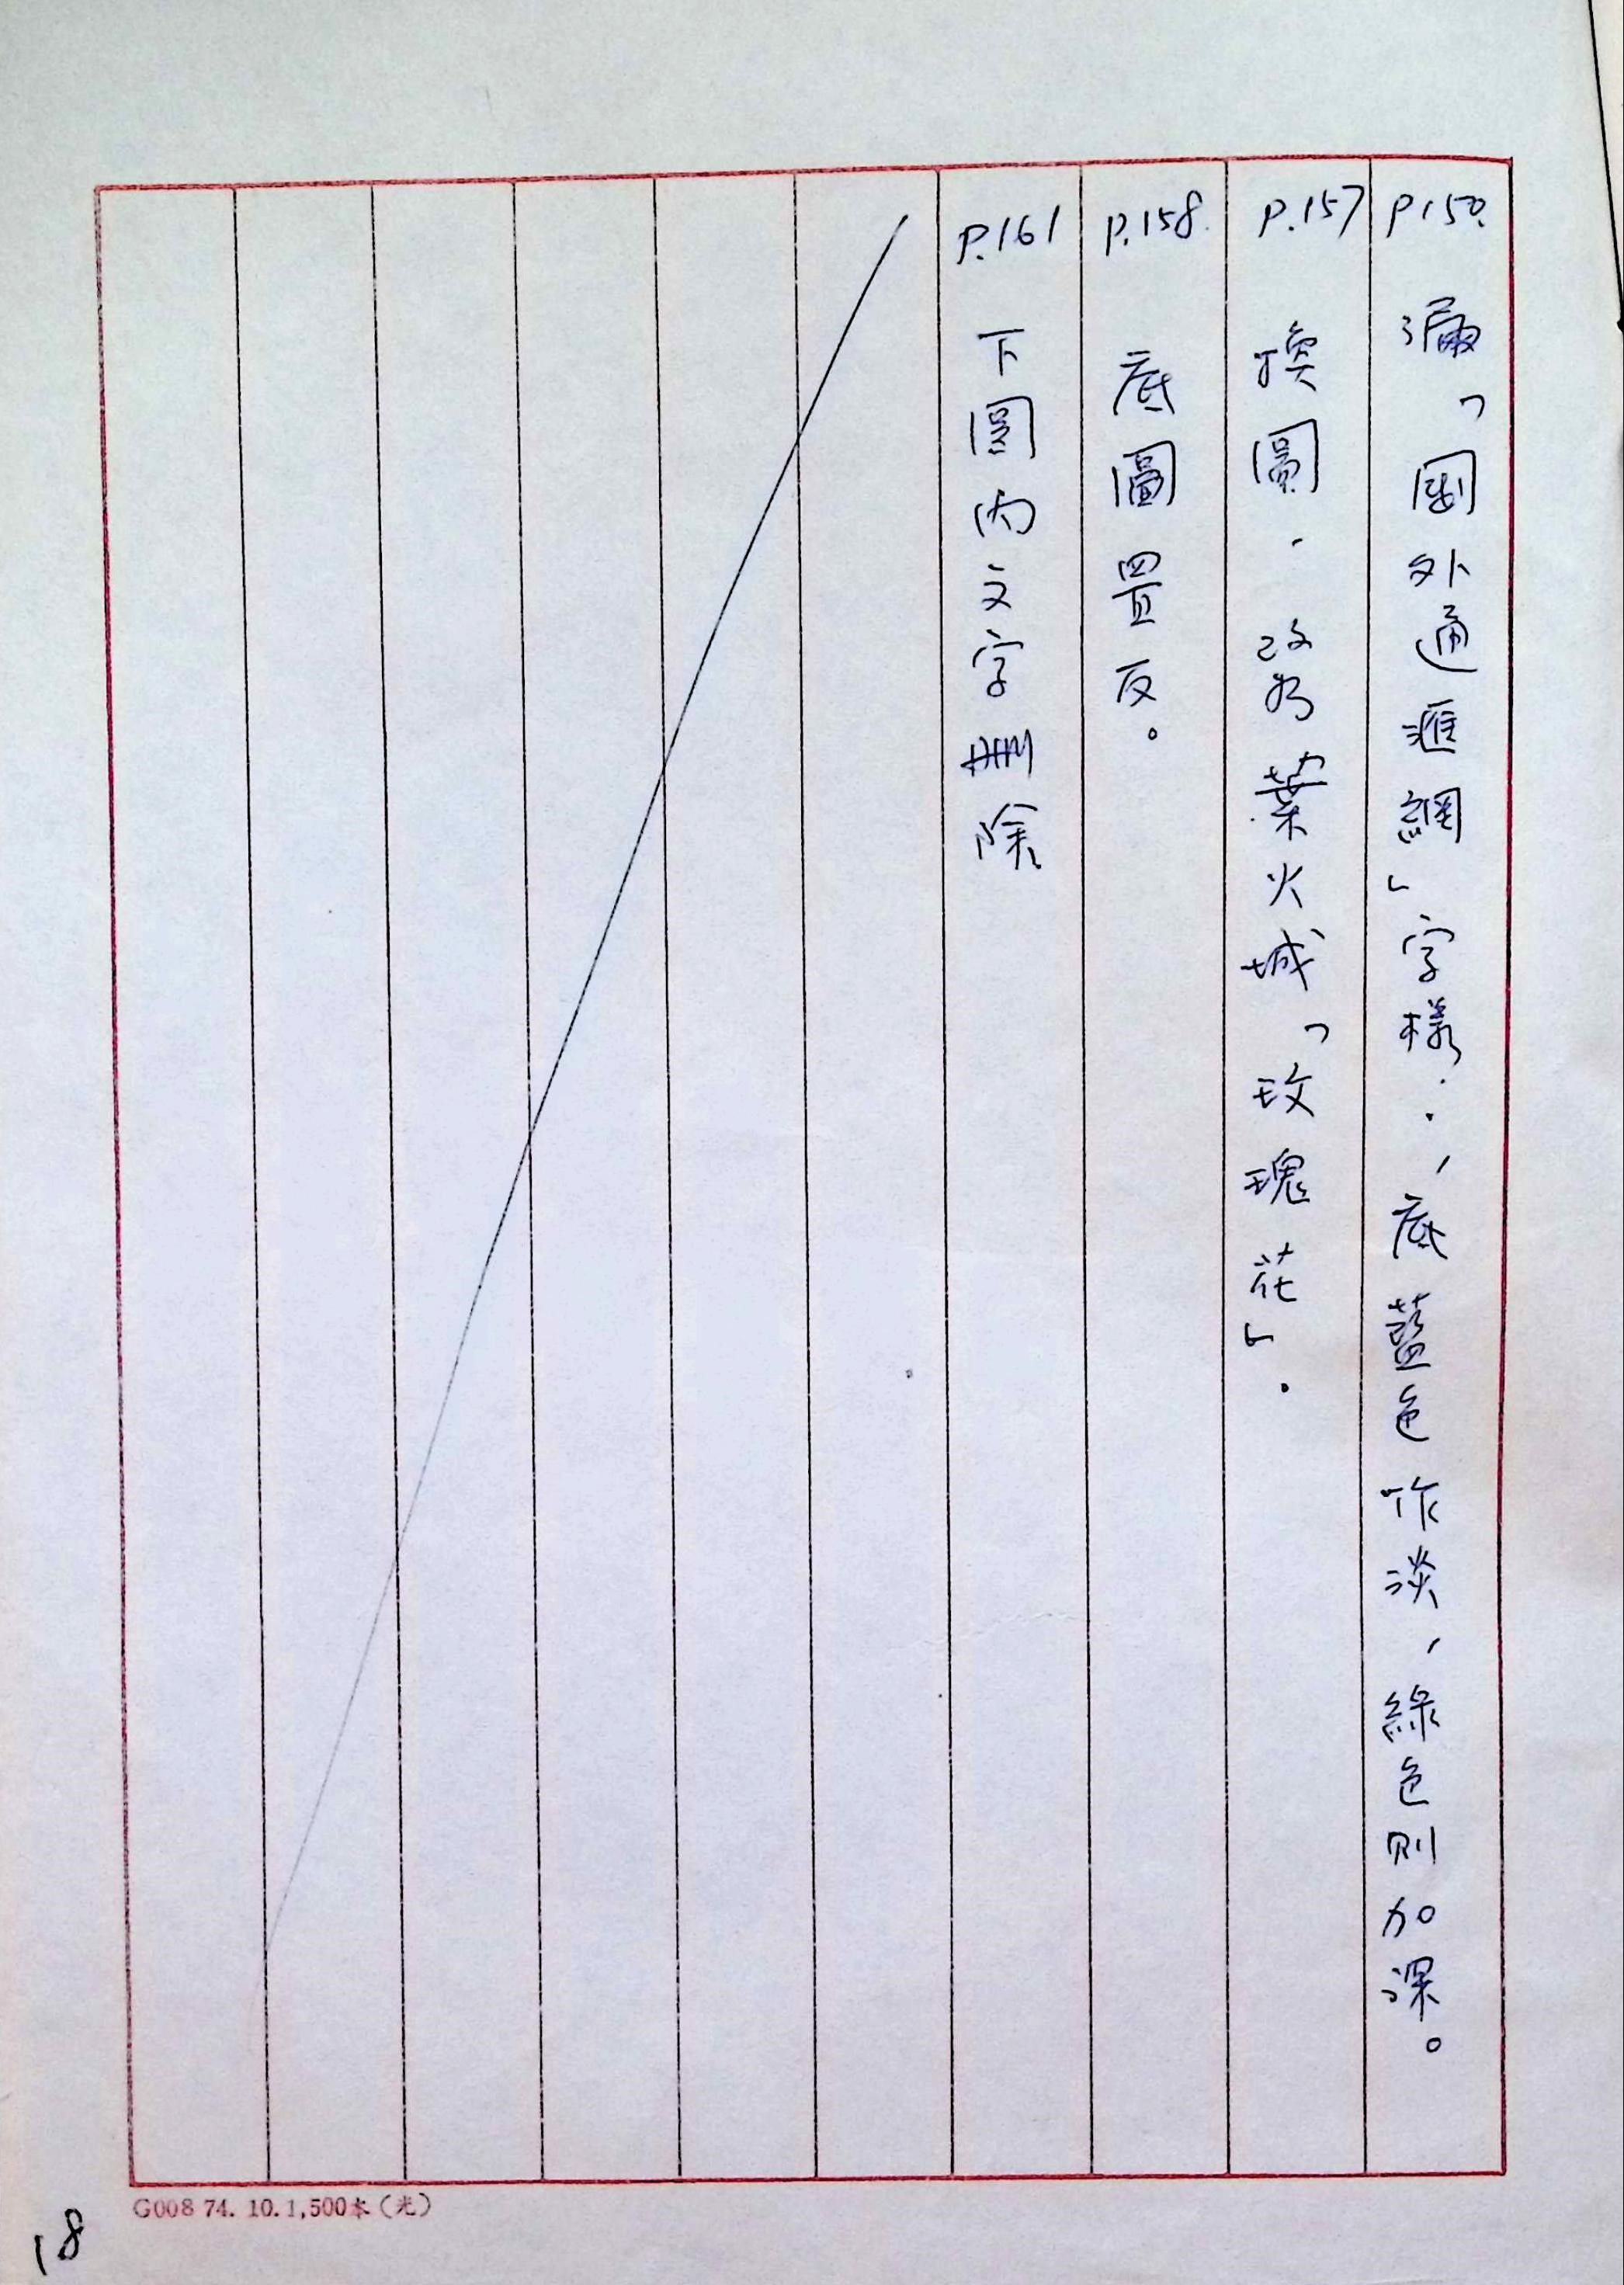 P.150. 漏「國外通匯網」字樣..,底藍色作淡,綠色則加深。
P.157 換圖.改為葉火城「玫瑰花」.
P.158. 底圖置反。
P.161 下圖內文字刪除
G008 74. 10. 1,500本(光)
18